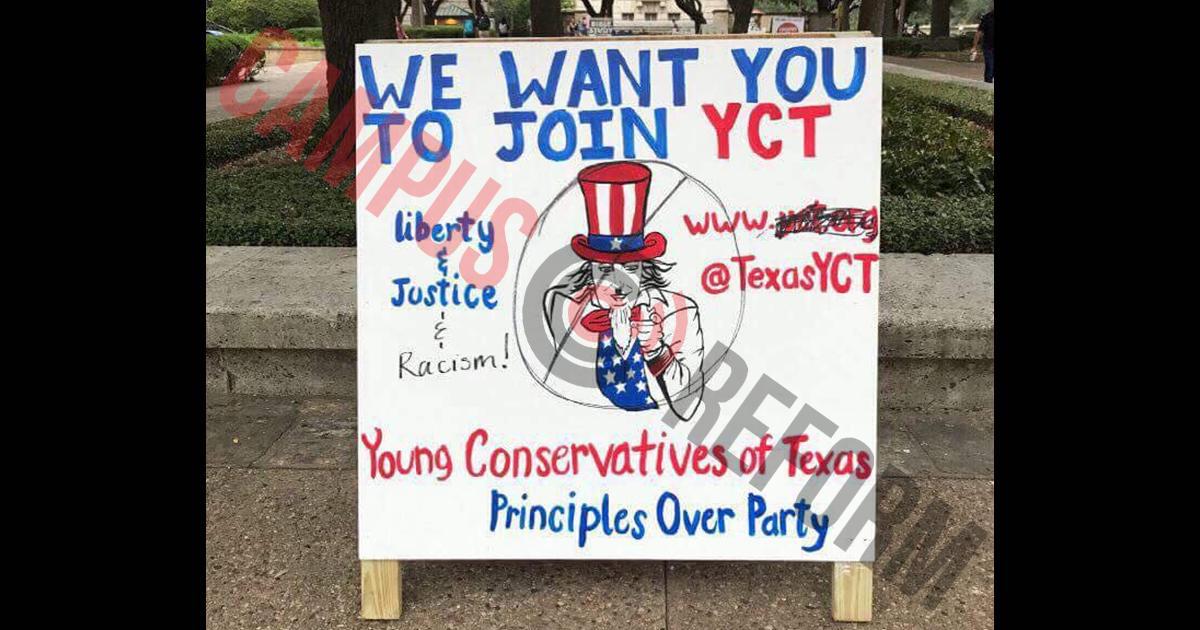 WE WANT YOU
TO JOIN YCT
liberty
&
Justice
&
Racism!
www.
@TexasYCT
Young Conservatives of Texas
Principles Over Party
CAMPUS
REFORM